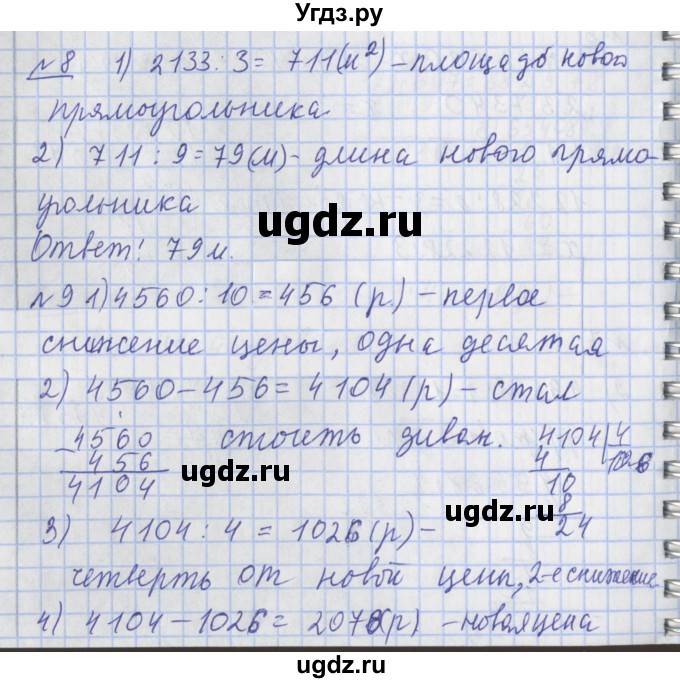 Угдз.ру
№8 1) 2133:3= 711(м²) – площадь нового
прямоугольника
2) 711:9=79(м)- длина нового прямо-
угольника
ugdz.ru
ugdz.ru
Ответ! 79м.
№9 1) 4560:10=456 (р) – первое
снижение цены, одна десятая
2) 4560-456= 4104(р) – стал
4560 стоить диван. 4104 4
456 4 1026
ugdz.ru
4104 10
ugdz.ru
8
3) 4104:4 = 1026(р)- 24
четверть от новой цены, 2-е снижение
4) 4104-1026= 2078(р) -новая цена
ugdz.ru